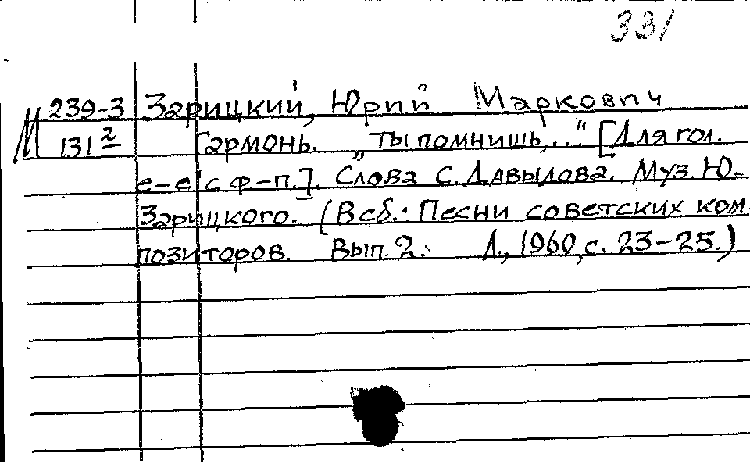 331
М 239-3 Зарицкий, Юрий Маркович
131² Гармонь. "Ты помнишь..." [Для гол.
с-е¹ с ф-п.]. Слова С. Давыдова. Муз. Ю.
Зарицкого. (В сб.: Песни советских ком-
позиторов. Вып. 2. Л., 1960, с. 23-25.)